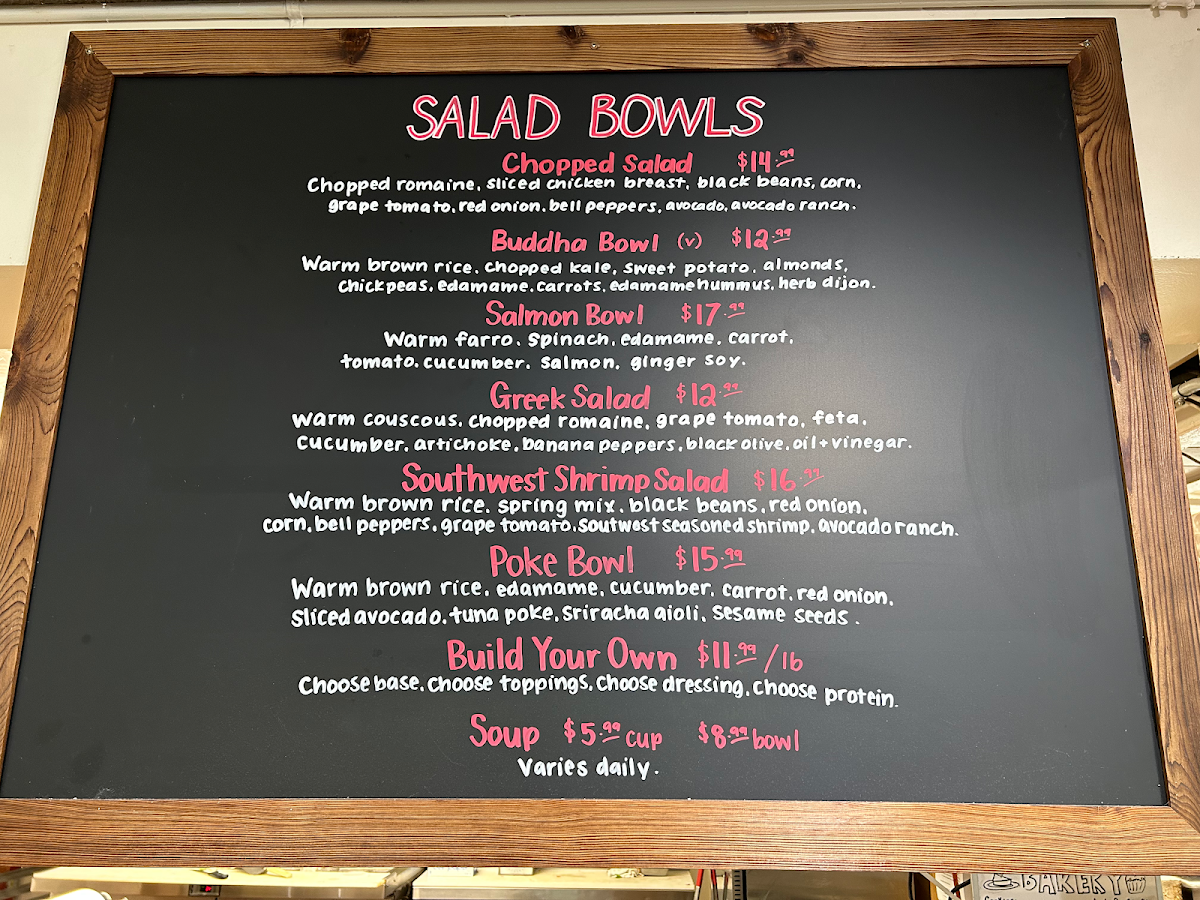 SALAD BOWLS
Chopped Salad $14.99
Chopped romaine, sliced chicken breast, black beans, corn,
grape tomato, red onion, bell peppers, avocado, avocado ranch.
Buddha Bowl (v) $12.99
Warm brown rice, chopped kale, sweet potato, almonds,
chickpeas, edamame, carrots, edamame hummus, herb dijon.
Salmon Bowl $17.99
Warm farro, spinach, edamame, carrot,
tomato, cucumber, salmon, ginger soy.
Greek Salad $12.99
Warm couscous, chopped romaine, grape tomato, feta,
cucumber, artichoke, banana peppers, black olive, oil + vinegar.
Southwest Shrimp Salad $16.99
Warm brown rice, spring mix, black beans, red onion,
corn, bell peppers, grape tomato, soutwest seasoned shrimp, avocado ranch.
Poke Bowl $15.99
Warm brown rice, edamame, cucumber, carrot, red onion,
sliced avocado, tuna poke, sriracha aioli, sesame seeds.
Build Your Own $11.99 /lb
Choose base, choose toppings, choose dressing, choose protein.
Soup $5.99 cup $8.99 bowl
Varies daily.
BAKERY